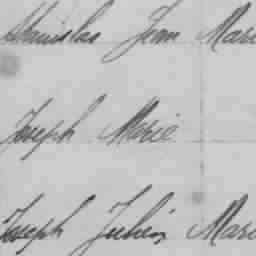 Stanislas Jean Mari
Joseph Marie
Joseph Julien Mari